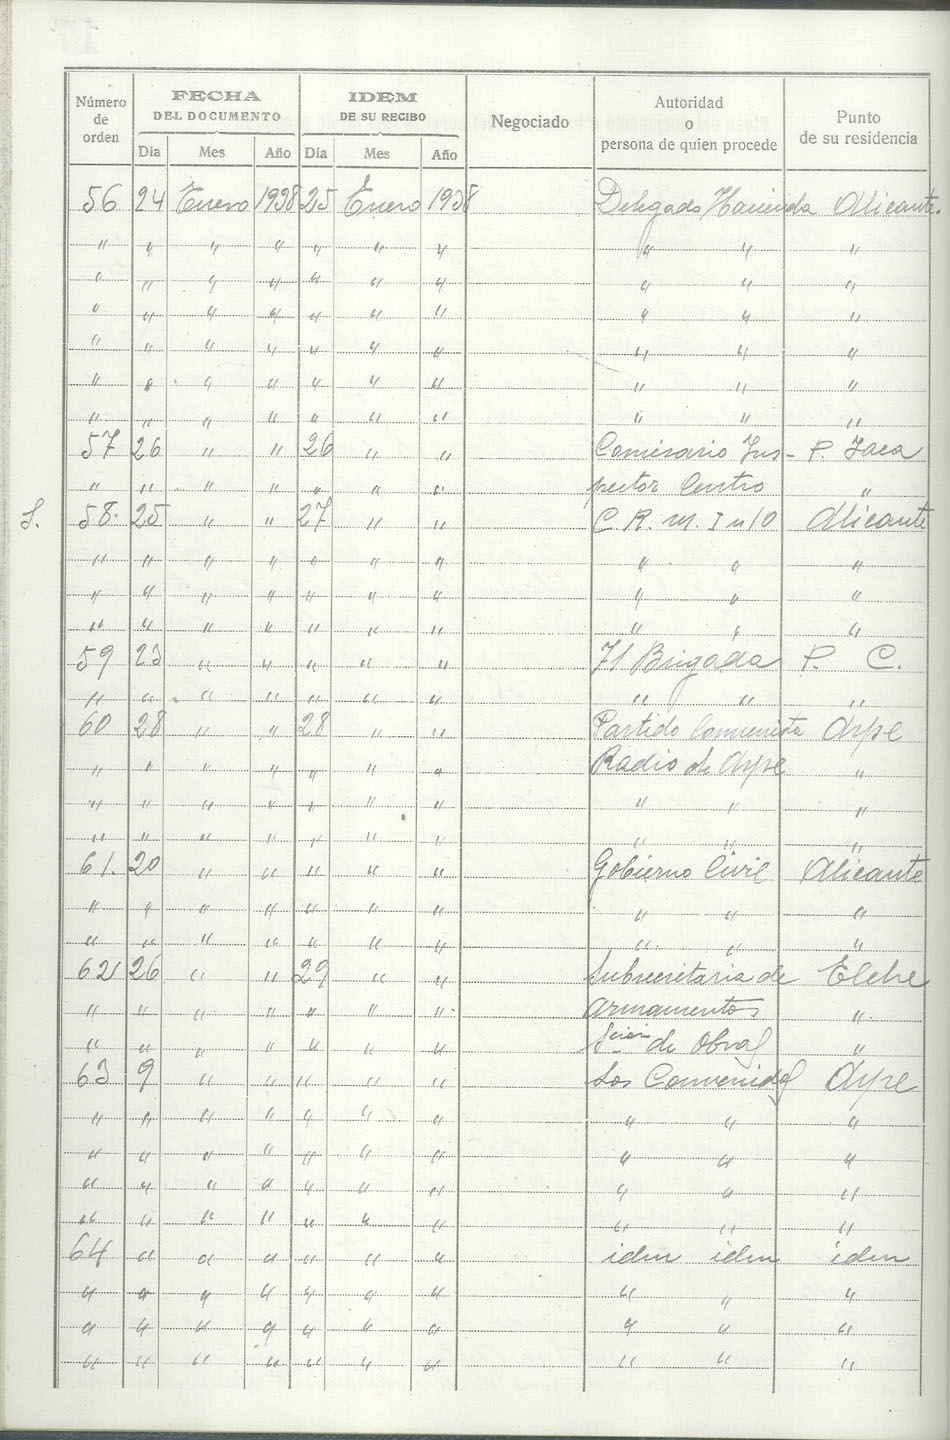 Número de orden | FECHA DEL DOCUMENTO | IDEM DE SU RECIBO | Negociado | Autoridad o persona de quien procede | Punto de su residencia
Día | Mes | Año | Día | Mes | Año
56 24 Enero 1938 25 Enero 1938 Delegado Hacienda Alicante.
" " " " " " " " " "
" " " " " " " " " "
" " " " " " " " " "
" " " " " " " " " "
" " " " " " " " " "
" " " " " " " " " "
57 26 " " 26 " " Comisario Ins- P. Jaca
" " " " " " " pector Centro "
S. 58. 25 " " 27 " " C. R. M. I nº 10 Alicante
" " " " " " " " " "
" " " " " " " " " "
" " " " " " " " " "
59 23 " " " " " 71 Brigada P. C.
" " " " " " " " " "
60 28 " " 28 " " Partido Comunista Aspe
" " " " " " " Radio de Aspe "
" " " " " " " " " "
" " " " " " " " " "
61. 20 " " " " " Gobierno Civil Alicante
" " " " " " " " " "
" " " " " " " " " "
62 26 " " 29 " " Subsecretaria de Elche
" " " " " " " Armamentos "
" " " " " " " Sción de Obras "
63 9 " " " " " Los Convenidos Aspe
" " " " " " " " " "
" " " " " " " " " "
" " " " " " " " " "
" " " " " " " " " "
64 " " " " " " idm idm idm
" " " " " " " " " "
" " " " " " " " " "
" " " " " " " " " "